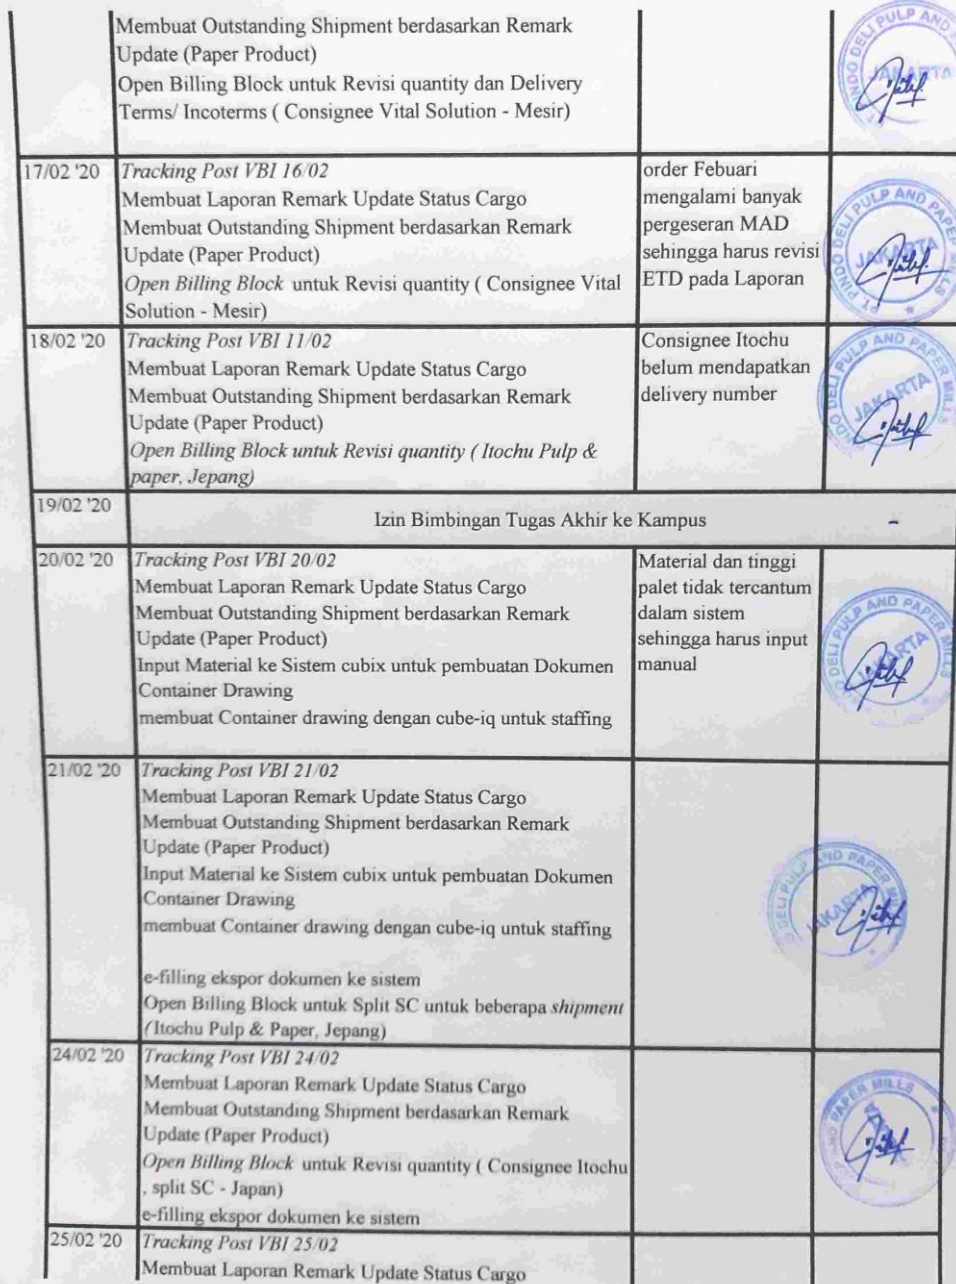 Membuat Outstanding Shipment berdasarkan Remark
Update (Paper Product)
Open Billing Block untuk Revisi quantity dan Delivery
Terms/ Incoterms ( Consignee Vital Solution - Mesir)
DELI PULP AND
JAKARTA
17/02 '20
Tracking Post VBI 16/02
Membuat Laporan Remark Update Status Cargo
Membuat Outstanding Shipment berdasarkan Remark
Update (Paper Product)
Open Billing Block untuk Revisi quantity ( Consignee Vital
Solution - Mesir)
order Febuari
mengalami banyak
pergeseran MAD
sehingga harus revisi
ETD pada Laporan
PT. PINDO DELI PULP AND PAPER MILLS
JAKARTA
18/02 '20
Tracking Post VBI 11/02
Membuat Laporan Remark Update Status Cargo
Membuat Outstanding Shipment berdasarkan Remark
Update (Paper Product)
Open Billing Block untuk Revisi quantity ( Itochu Pulp &
paper, Jepang)
Consignee Itochu
belum mendapatkan
delivery number
NDO DELI PULP AND PAPER MILLS
JAKARTA
19/02 '20
Izin Bimbingan Tugas Akhir ke Kampus
-
20/02 '20
Tracking Post VBI 20/02
Membuat Laporan Remark Update Status Cargo
Membuat Outstanding Shipment berdasarkan Remark
Update (Paper Product)
Input Material ke Sistem cubix untuk pembuatan Dokumen
Container Drawing
membuat Container drawing dengan cube-iq untuk staffing
Material dan tinggi
palet tidak tercantum
dalam sistem
sehingga harus input
manual
DELI PULP AND PAPER MILLS
JAKARTA
21/02 '20
Tracking Post VBI 21/02
Membuat Laporan Remark Update Status Cargo
Membuat Outstanding Shipment berdasarkan Remark
Update (Paper Product)
Input Material ke Sistem cubix untuk pembuatan Dokumen
Container Drawing
membuat Container drawing dengan cube-iq untuk staffing
e-filling ekspor dokumen ke sistem
Open Billing Block untuk Split SC untuk beberapa shipment
(Itochu Pulp & Paper, Jepang)
DELI PULP AND PAPER MILLS
JAKARTA
24/02 '20
Tracking Post VBI 24/02
Membuat Laporan Remark Update Status Cargo
Membuat Outstanding Shipment berdasarkan Remark
Update (Paper Product)
Open Billing Block untuk Revisi quantity ( Consignee Itochu
, split SC - Japan)
e-filling ekspor dokumen ke sistem
AND PAPER MILLS
25/02 '20
Tracking Post VBI 25/02
Membuat Laporan Remark Update Status Cargo